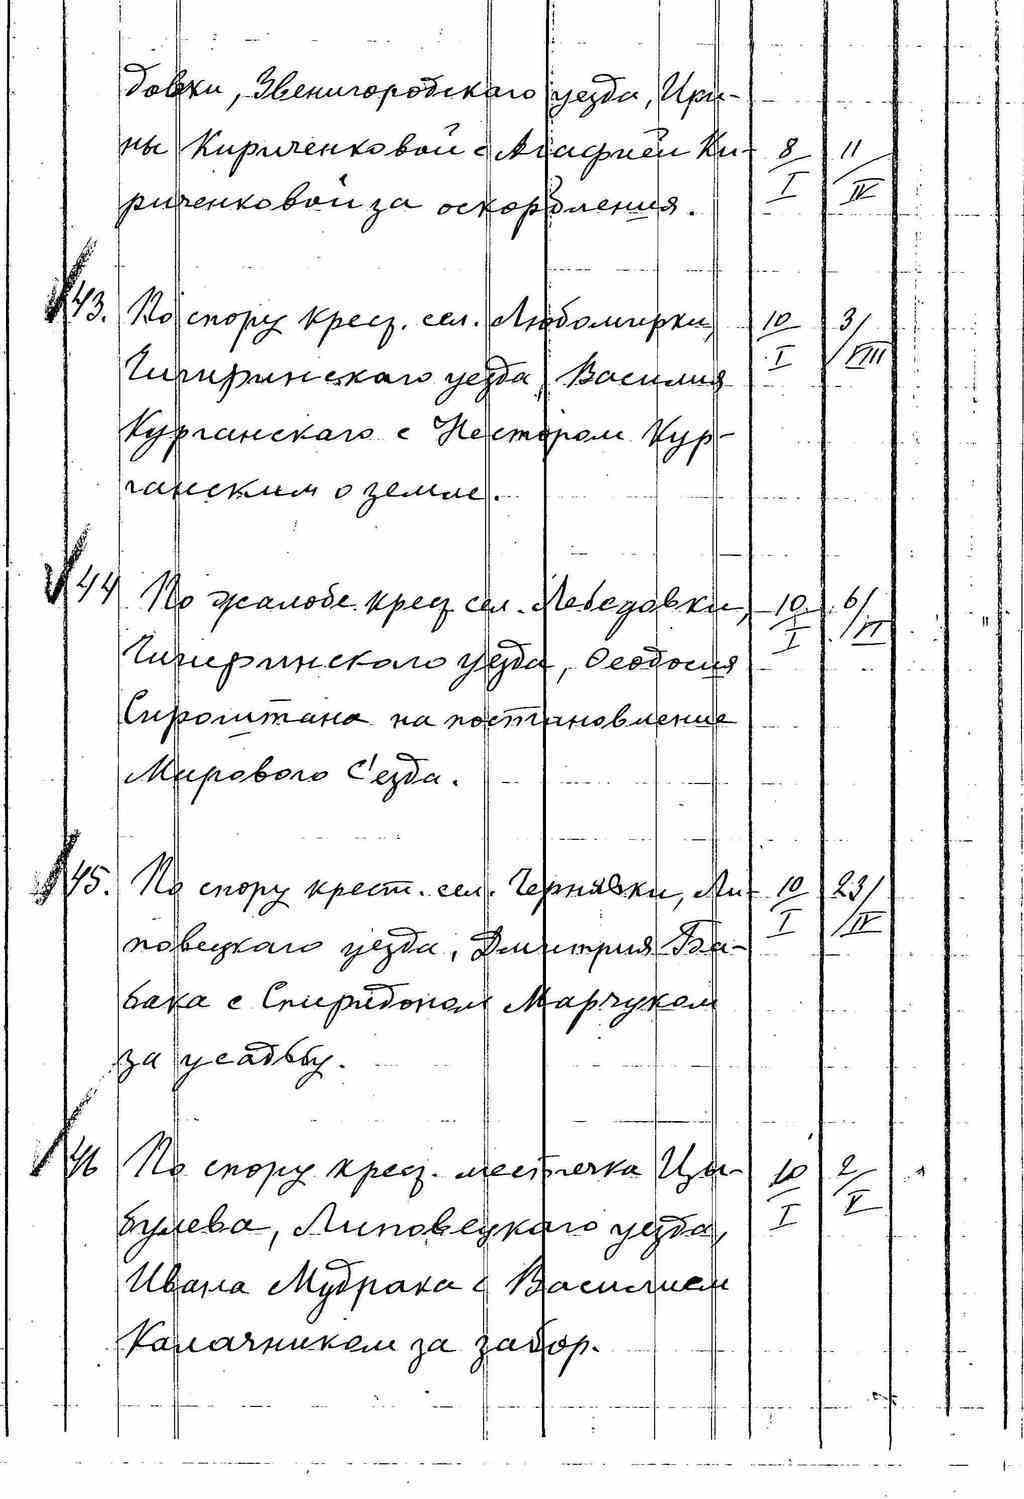 довки, Звенигородскаго уезда, Ири-
ны Кириченковой с Агафией Ки- 8/I 11/IV
риченковой за оскорбления.
43. По спору крест. сел. Любомирки, 10/I 3/VIII
Чигиринскаго уезда, Василия
Курганскаго с Нестором Кур-
ганским о земле.
44 По жалобе крест сел. Лебедовки, 10/I 6/VI
Чигиринского уезда, Феодосия
на постановление
Мирового С'езда.
45. По спору крест. сел. Чернявки, Ли- 10/I 23/IV
повецкаго уезда, Дмитрия Ба-
бака с Спиридоном Марчуком
за усадьбу.
46 По спору крест. местечка Цы- 10/I 2/V
булева, Липовецкаго уезда,
Ивана Мудрака с Василием
Калачником за забор.